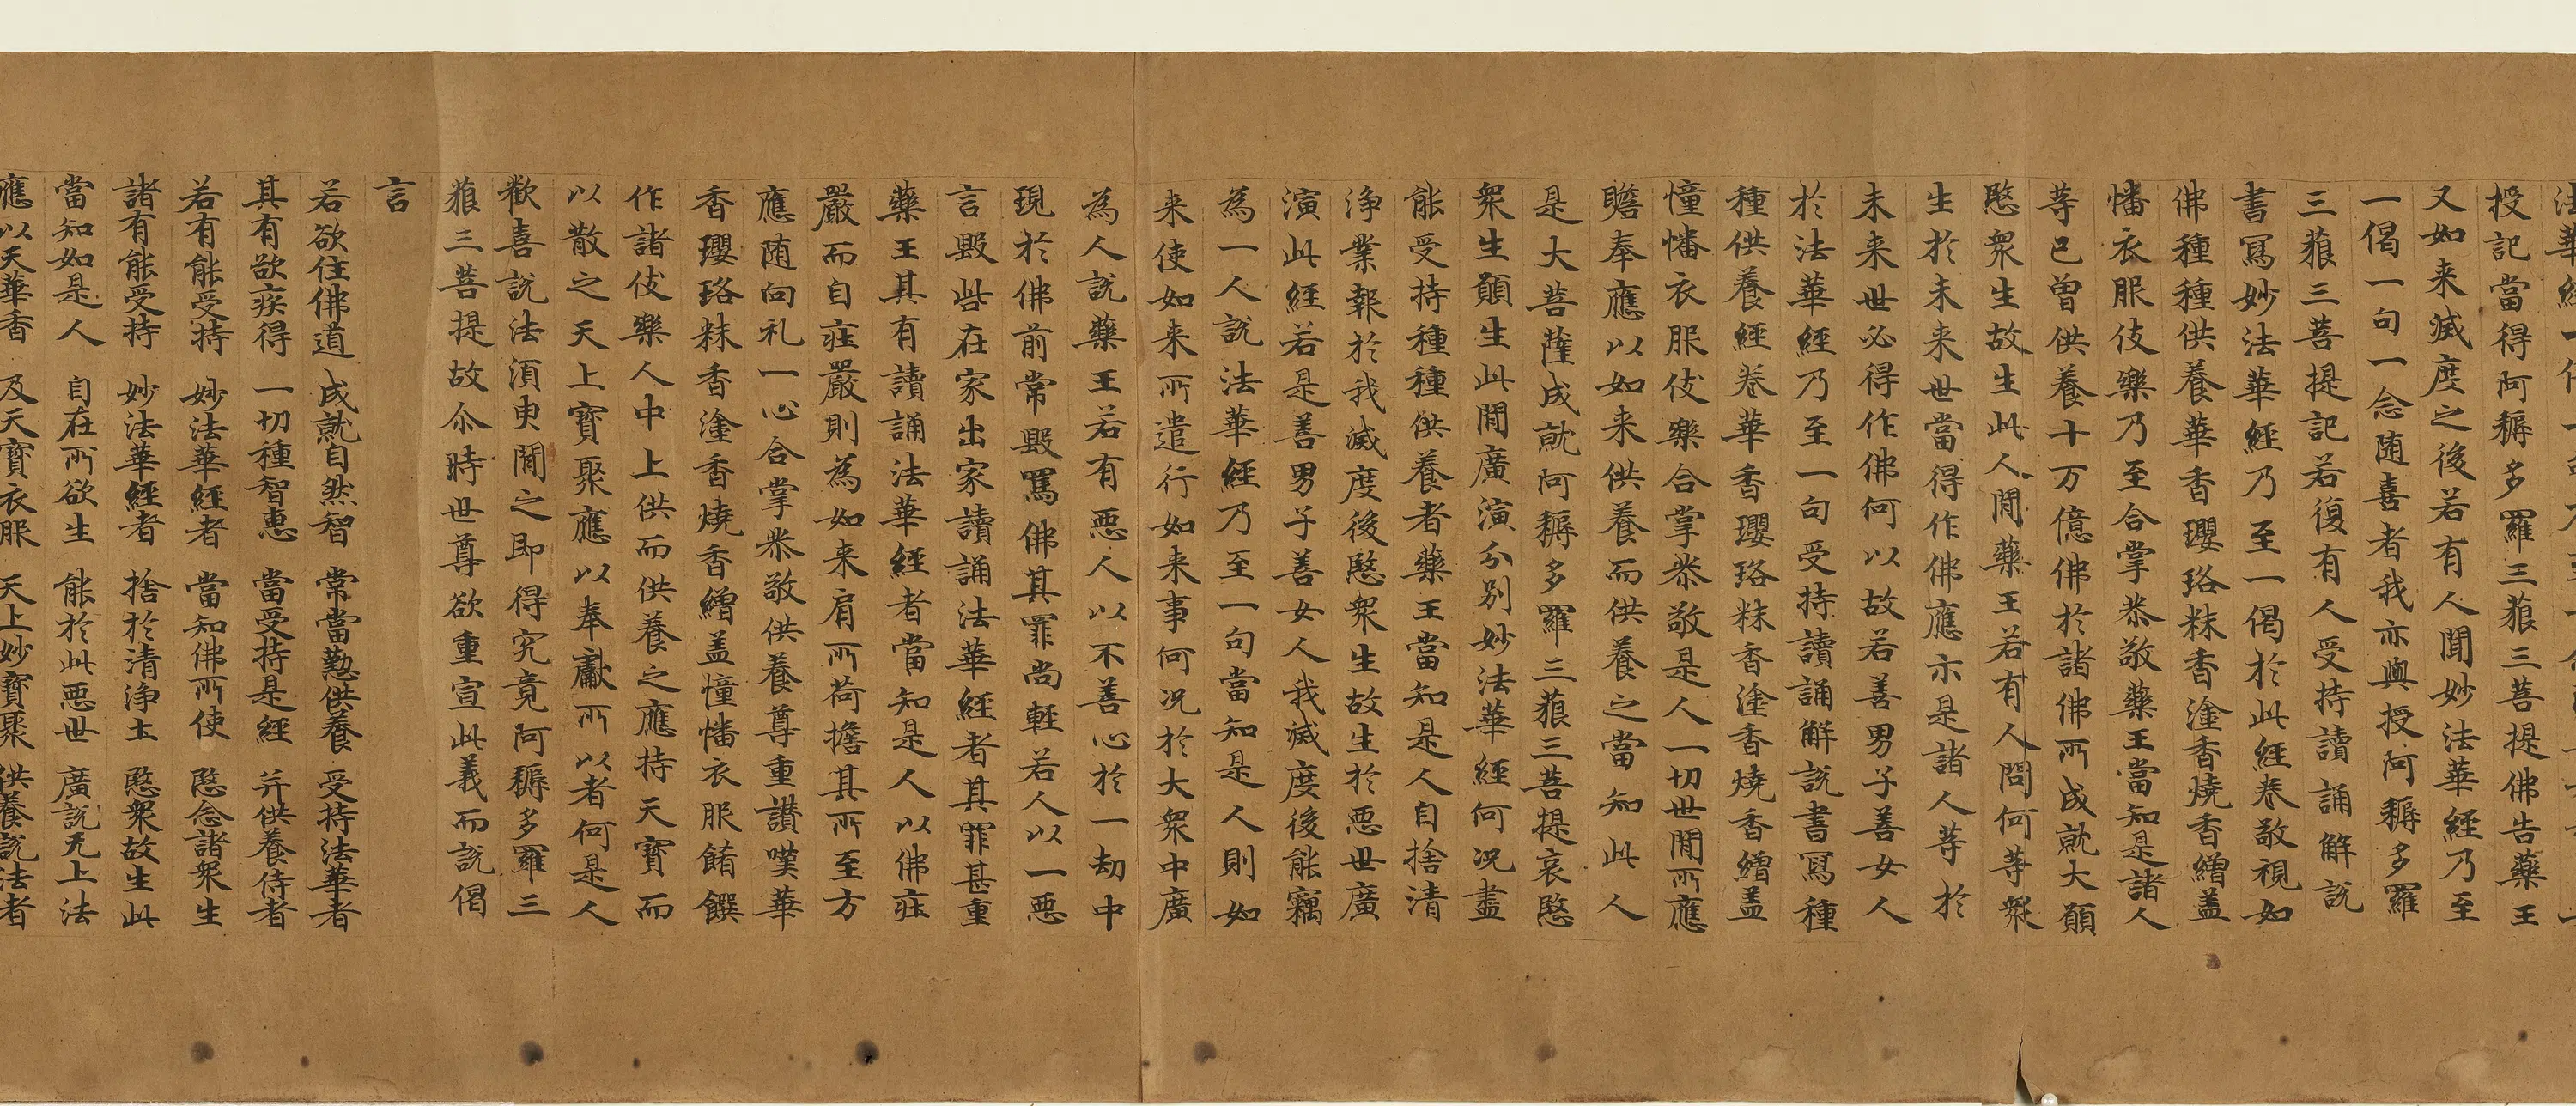 法華經一
授記當得阿耨多羅三藐三菩提佛告藥王
又如来滅度之後若有人聞妙法華經乃至
一偈一句一念随喜者我亦與授阿耨多羅
三藐三菩提記若復有人受持讀誦解説
書寫妙法華經乃至一偈於此經卷敬視如
佛種種供養華香瓔珞粖香塗香燒香繒盖
幡衣服伎樂乃至合掌恭敬藥王當知是諸人
等已曾供養十万億佛於諸佛所成就大願
愍衆生故生此人閒藥王若有人問何等衆
生於未来世當得作佛應示是諸人等於
未来世必得作佛何以故若善男子善女人
於法華經乃至一句受持讀誦解説書寫種
種供養經卷華香瓔珞粖香塗香燒香繒盖
憧幡衣服伎樂合掌恭敬是人一切世閒所應
瞻奉應以如来供養而供養之當知此人
是大菩薩成就阿耨多羅三藐三菩提哀愍
衆生願生此閒廣演分別妙法華經何况盡
能受持種種供養者藥王當知是人自捨清
浄業報於我滅度後愍衆生故生於惡世廣
演此經若是善男子善女人我滅度後能竊
為一人説法華經乃至一句當知是人則如
来使如来所遣行如来事何况於大衆中廣
為人説藥王若有惡人以不善心於一劫中
現於佛前常毀罵佛其罪尚軽若人以一惡
言毀呰在家出家讀誦法華經者其罪甚重
藥王其有讀誦法華經者當知是人以佛莊
嚴而自莊嚴則為如来肩所荷擔其所至方
應随向礼一心合掌恭敬供養尊重讃嘆華
香瓔珞粖香塗香燒香繒盖憧幡衣服餚饌
作諸伎樂人中上供而供養之應持天寶而
以散之天上寶聚應以奉獻所以者何是人
歡喜説法湏臾聞之即得究竟阿耨多羅三
藐三菩提故尒時世尊欲重宣此義而説偈
言
若欲住佛道 成就自然智 常當懃供養 受持法華者
其有欲疾得 一切種智恵 當受持是經 并供養侍者
若有能受持 妙法華經者 當知佛所使 愍念諸衆生
諸有能受持 妙法華經者 捨於清浄土 愍衆故生此
當知如是人 自在所欲生 能於此惡世 廣説无上法
應以天華香 及天寶衣服 天上妙寶聚 供養説法者